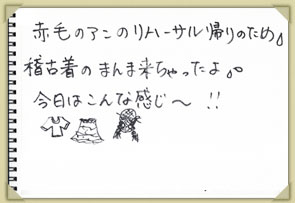 赤毛のアンのリハーサル帰りのため。
稽古着のまんま来ちゃったよ。。
今日はこんな感じ〜!!